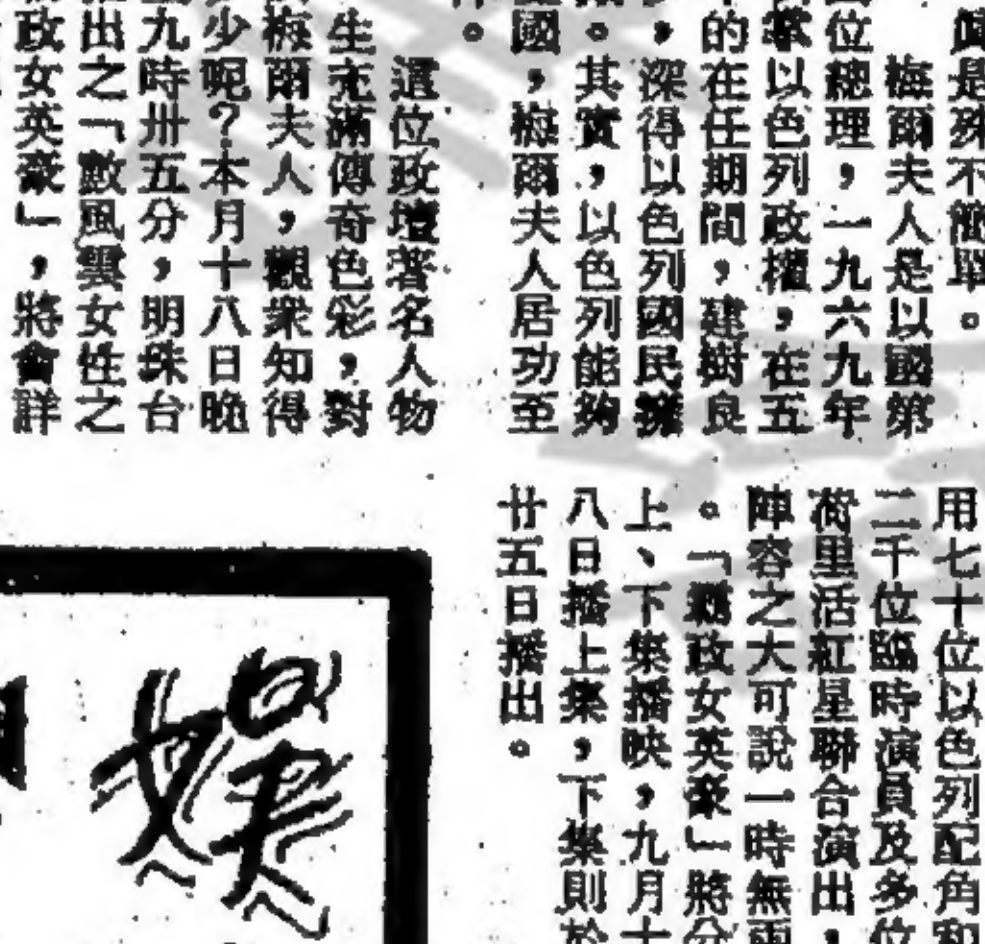 眞是殊不簡單。
梅爾夫人是以國第
位總理，一九六九年
掌以色列政權，在五
的在任期間，建樹良
，深得以色列國民擁
。其實，以色列能夠
國，梅爾夫人居功至
。
這位政壇著名人物
生充滿傳奇色彩，對
梅爾夫人，觀衆知得
少呢？本月十八日晚
九時卅五分，明珠台
出之「數風雲女性之
政女英豪」，將會詳
用七十位以色列配角和
二千位臨時演員及多位
荷里活紅星聯合演出，
陣容之大可說一時無兩
。「聽政女英豪」將分
上、下集播映，九月十
八日播上集，下集則於
廿五日播出。
娛